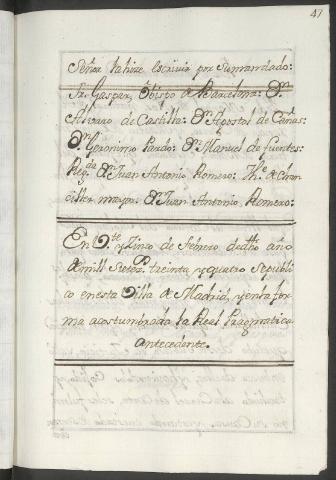 47
Señor la hize escrivir por su mandado:
Fr. Gaspar, Obispo de Barzelona: Dn.
Alvaro de Castilla: Dn. Apostol de Cañas:
Dn. Geronimo Pardo: Dn. Manuel de fuentes:
Regda. Dn. Juan Antonio Romero: Thte. de Chan
ciller mayor. Dn. Juan Antonio Romero:
En Vte. y Zinco de febrero de dho año
de mill Setezs. treinta y quatro se publi
co en esta Villa de Madrid, y en la for
ma acostumbrada la Real Pragmatica
antecedente.